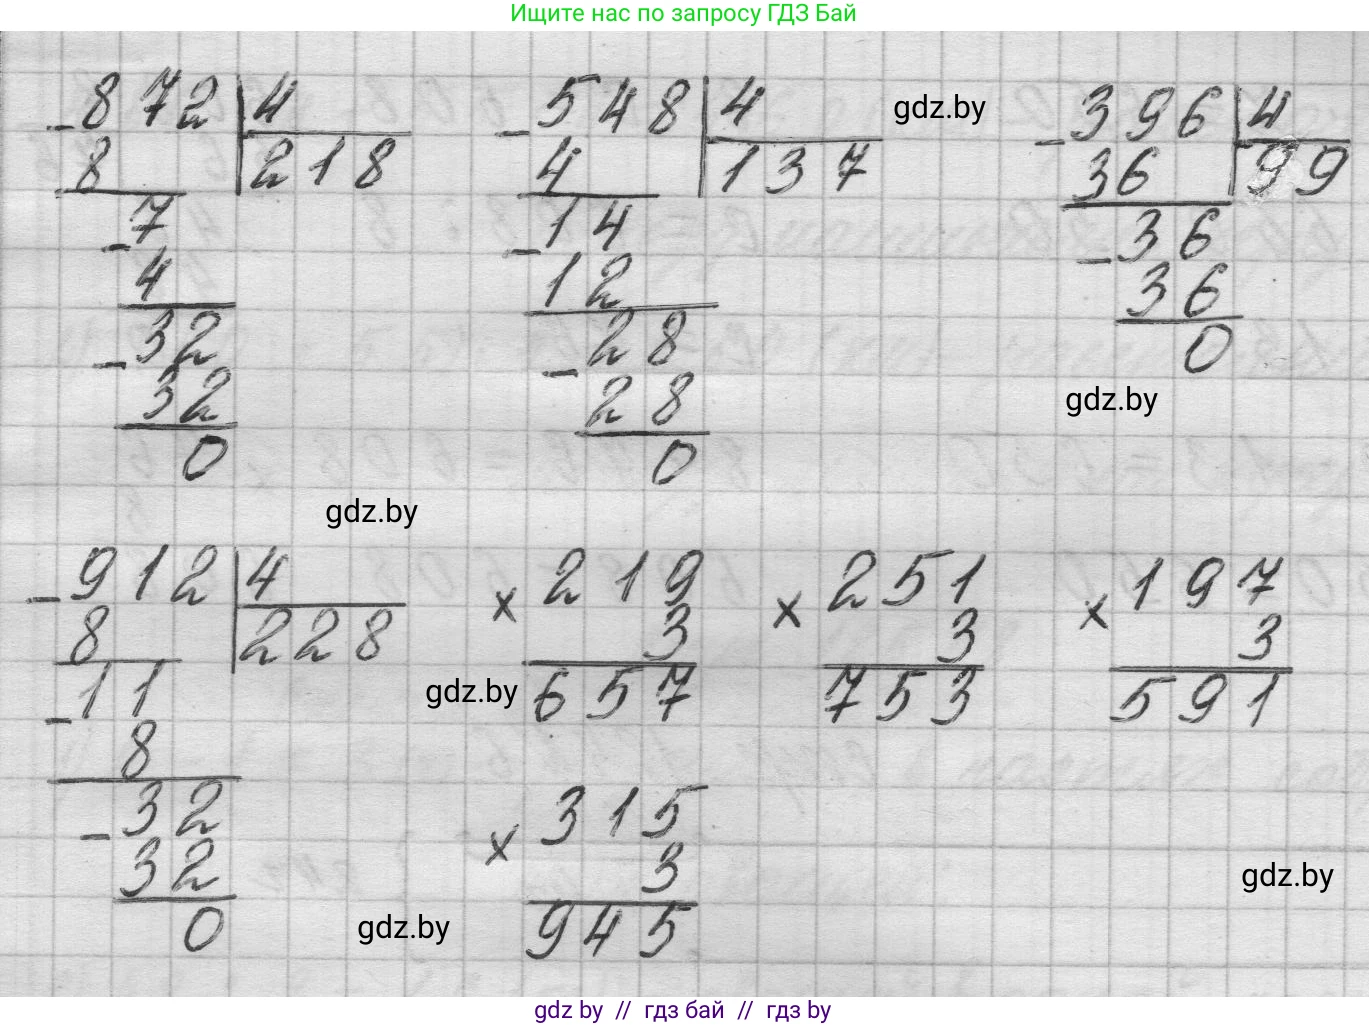 Ищите нас по запросу ГДЗ Бай
- 872 | 4
8 218
- 7
4
- 32
32
0
- 548 | 4
4 137
- 14
12
- 28
28
0
gdz.by
- 396 | 4
36 99
- 36
36
0
gdz.by
gdz.by
- 912 | 4
8 228
- 11
8
- 32
32
0
gdz.by
× 219
3
657
× 251
3
753
× 197
3
591
× 315
3
945
gdz.by
gdz.by
gdz by // гдз бай // гдз by